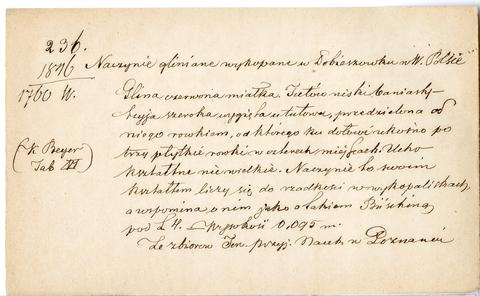 236.
1876
1760 W.
(K. Beyer
Tab XI)
Naczynie gliniane wykopane w Dobieszewku w W. Polsce
Glina czerwona miałka. Tułów niski baniasty
szyja szeroka wypięta u tułowa, przedzielona od
niego rowkiem, od którego ku dołowi ukośno po
trzy płytkie rowki w czterech miejscach. Ucho
kształtne nie wielkie. Naczynie to swoim
kształtem liczy się do rzadkości w wykopaliskach,
a wspomina o nim jako o takiem Büsching
pod L 4. Wysokość 0.095 m.
Ze zbiorów Tow. przyj. Nauk w Poznaniu